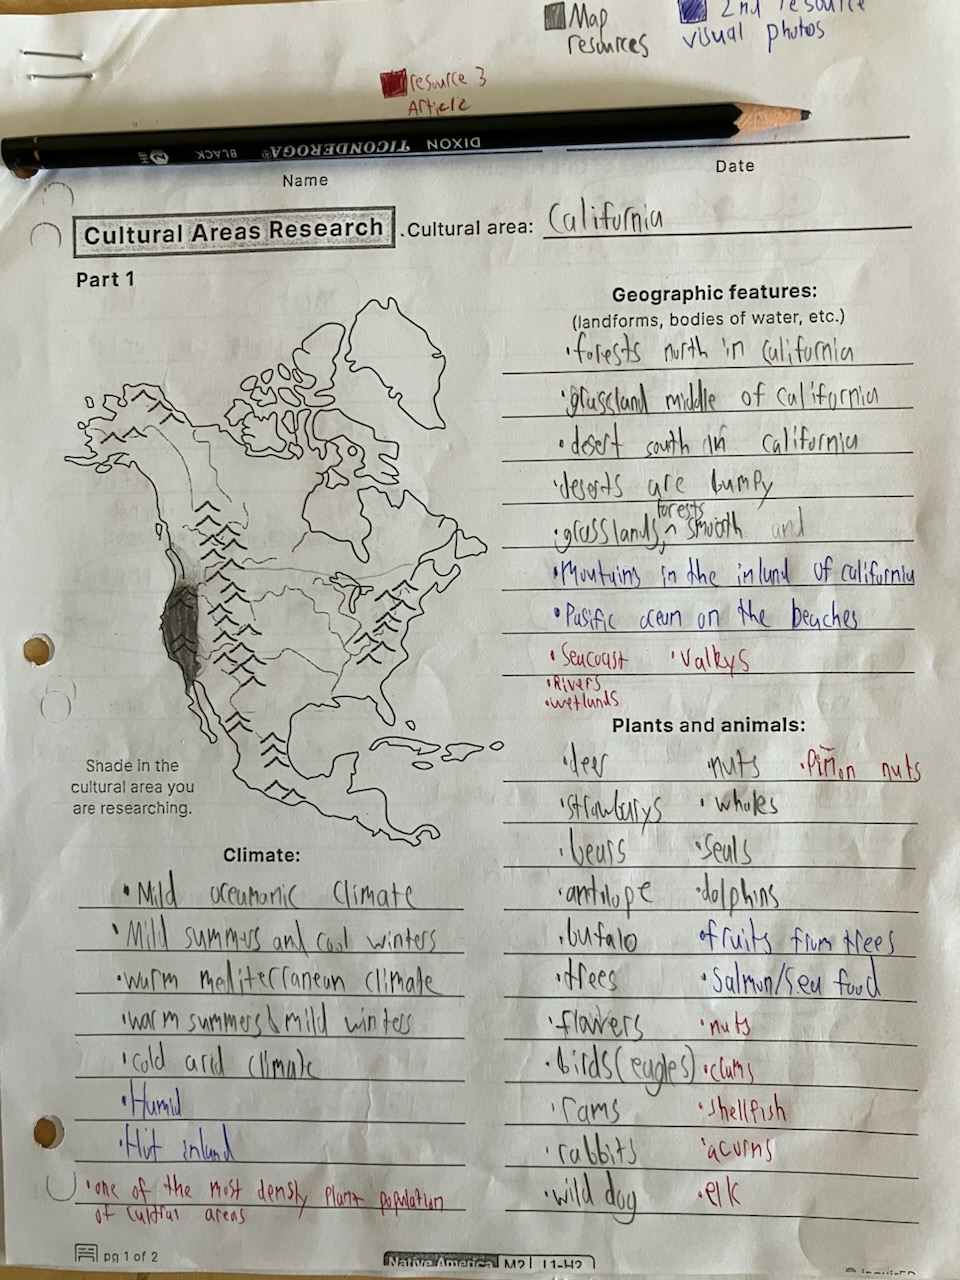 Map
resources
2nd resource
visual photos
resource 3
Article
DIXON TICONDEROGA® BLACK
Name
Date
Cultural Areas Research
.Cultural area: California
Part 1
Geographic features:
(landforms, bodies of water, etc.)
•forests north in California
•grassland middle of California
•desert south in California
•deserts are bumpy
forests
•grasslands, ^ smooth and
•Mountains in the inland of california
•Pasific ocean on the beaches
•Seacoast •Valkys
•Rivers
•wetlands
Shade in the
cultural area you
are researching.
Climate:
•Mild oceumanic Climate
•Mild summers and cool winters
•warm mediterranean climate
•warm summers & mild winters
•cold arid climate
•Humid
•Hot inland
•one of the most densly plant population
of cultral areas
Plants and animals:
•deer •nuts •Piñon nuts
•strawburys •whales
•bears •seals
•antilope •dolphins
•bufalo •fruits from trees
•trees •Salmon/Sea food
•flowers •nuts
•birds(eagles) •clams
•rams •shellfish
•rabbits •acorns
•wild dog •elk
pg 1 of 2
Native America M2 L1-H2